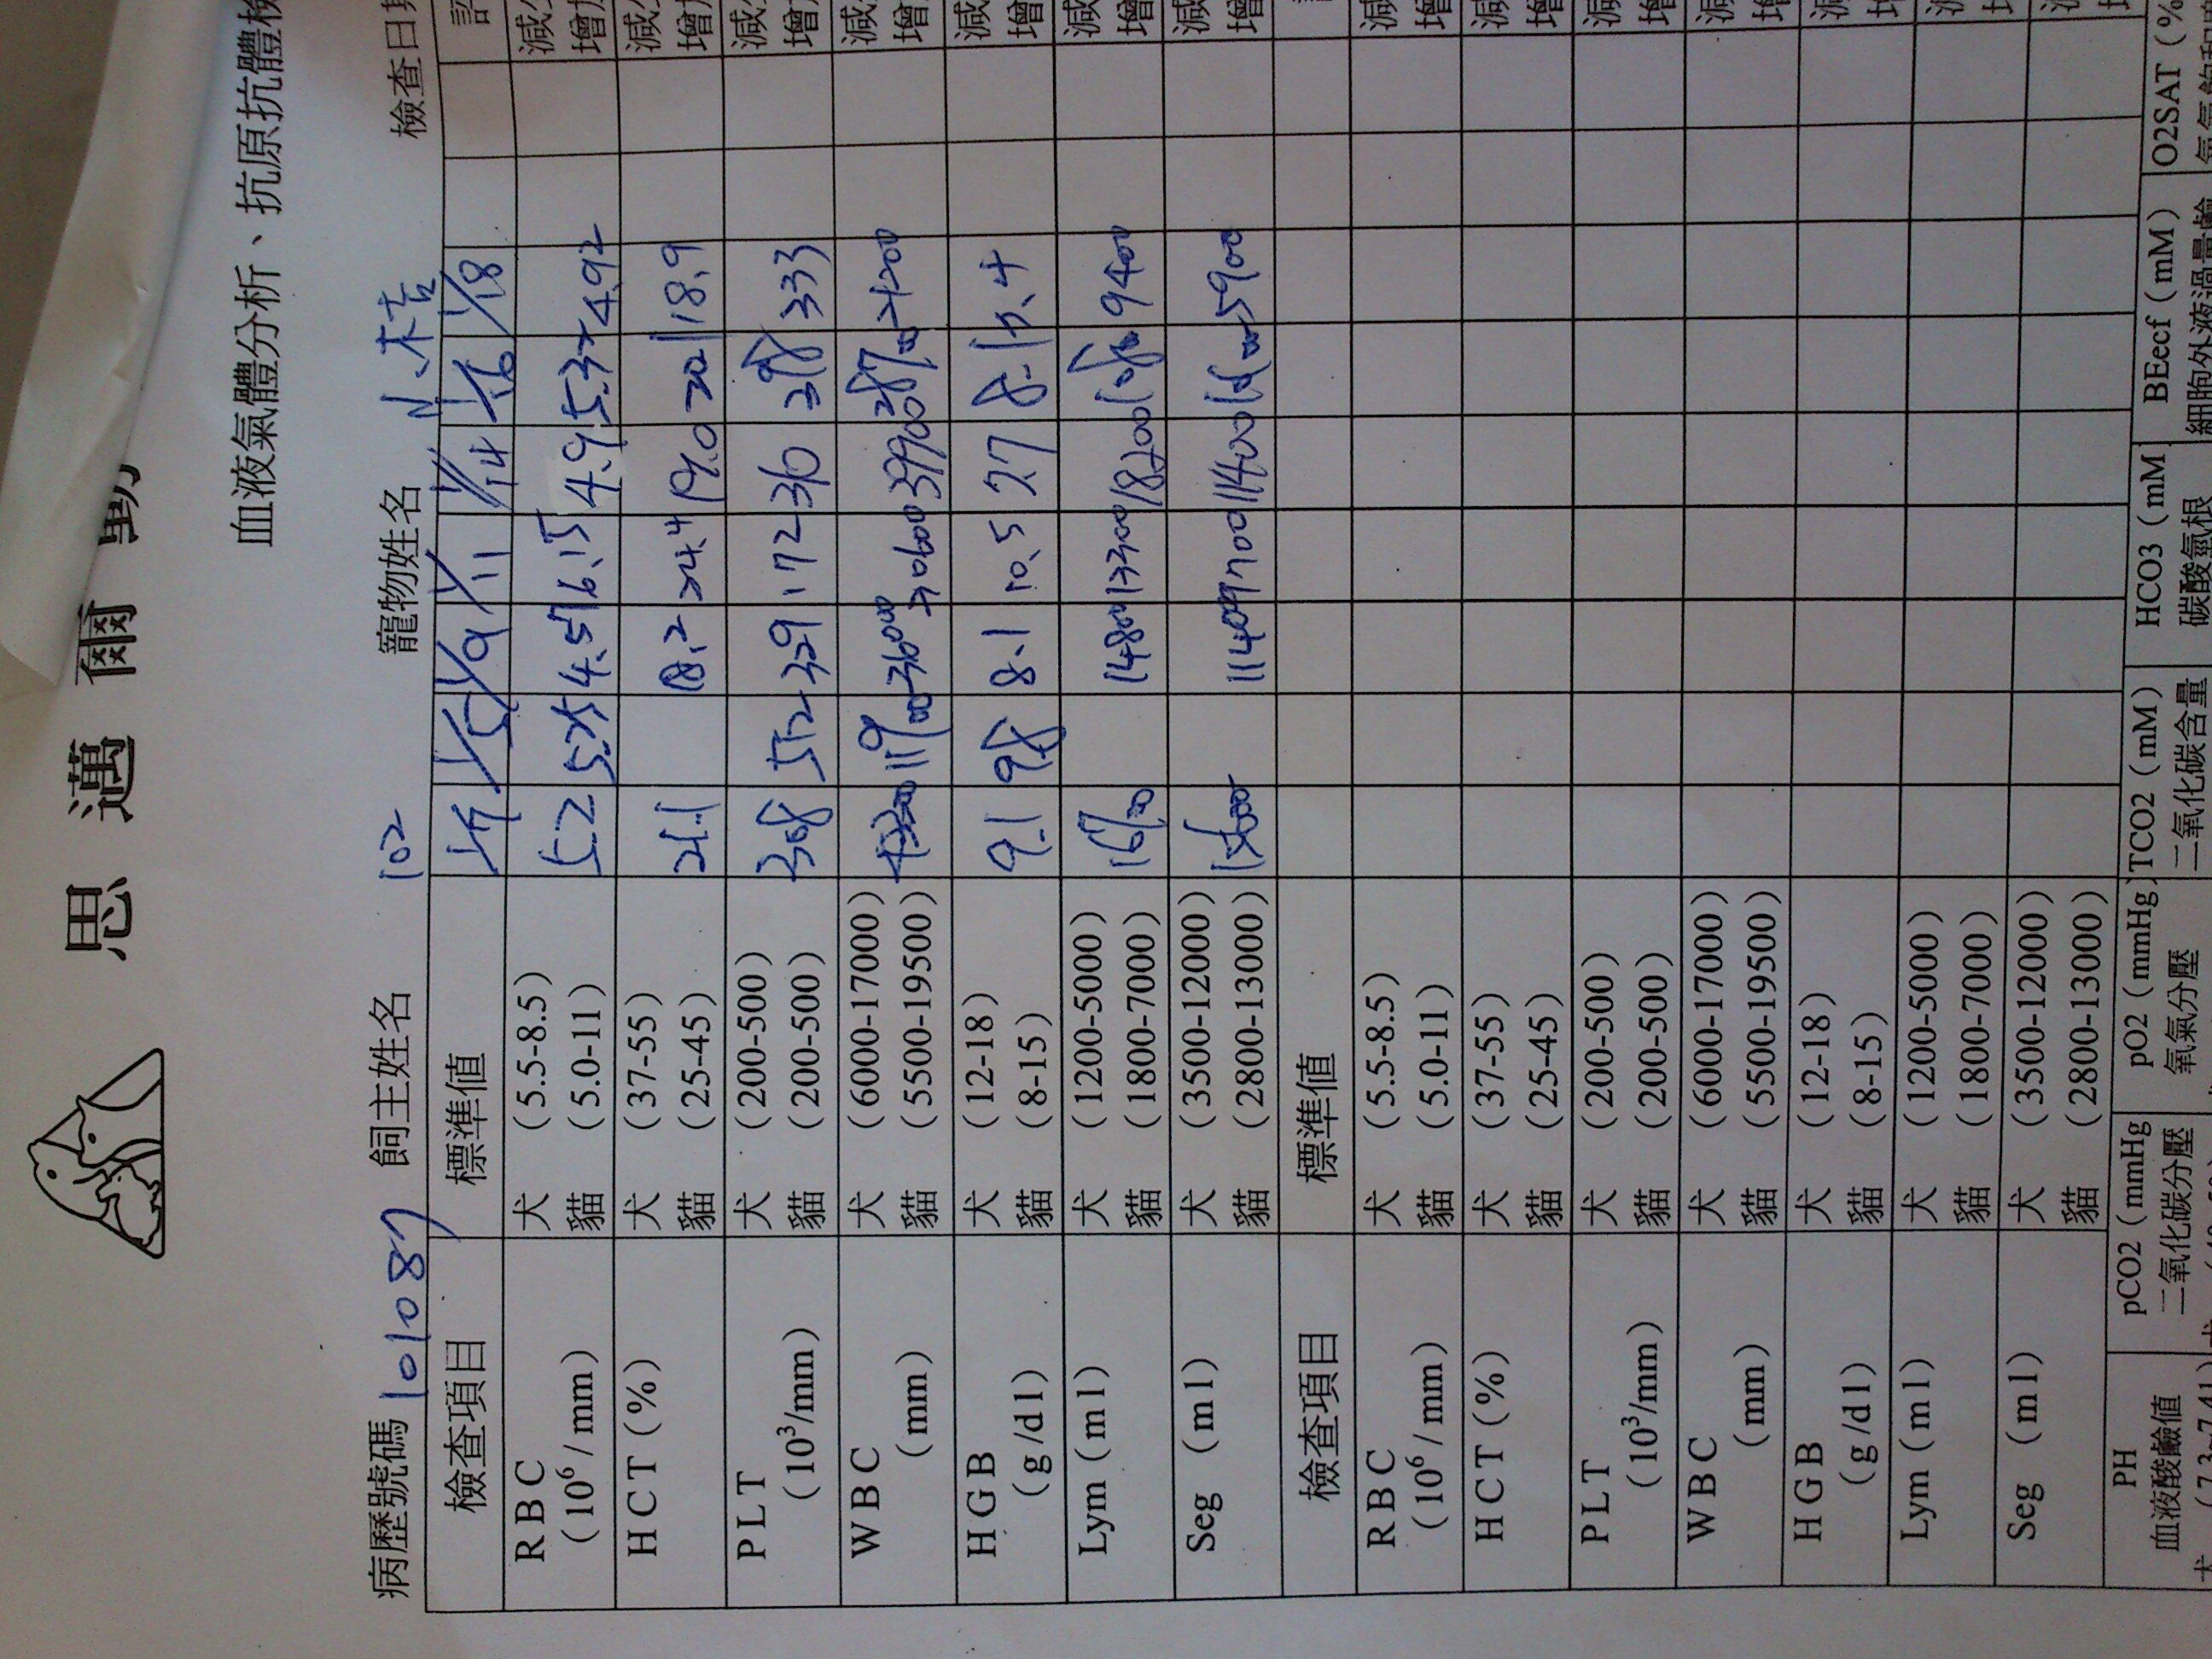 思邁爾動
血液氣體分析、抗原抗體檢
病歷號碼 101087 飼主姓名 102 寵物姓名 小木吉 檢查日期
檢查項目 標準值 1/5 1/9 1/11 1/14 1/16 1/18
RBC 犬 (5.5-8.5) 減少
(10⁶/mm) 貓 (5.0-11) 5.2 5.25 4.57 6.15 4.9 5.37 4.92 增加
HCT(%) 犬 (37-55) 減少
貓 (25-45) 21.1 18.2 24.4 19.0 18.9 增加
PLT 犬 (200-500) 減少
(10³/mm) 貓 (200-500) 308 512 329 172 298 333 增加
WBC 犬 (6000-17000) 減少
(mm) 貓 (5500-19500) 36000 30600 39900 增加
HGB 犬 (12-18) 減少
(g/dl) 貓 (8-15) 9.1 9.8 8.1 10.5 7.7 8.1 增加
Lym(ml) 犬 (1200-5000) 減少
貓 (1800-7000) 14800 13300 18200 9400 增加
Seg (ml) 犬 (3500-12000) 減少
貓 (2800-13000) 11400 9700 11400 5900 增加
檢查項目 標準值
RBC 犬 (5.5-8.5)
(10⁶/mm) 貓 (5.0-11)
HCT(%) 犬 (37-55)
貓 (25-45)
PLT 犬 (200-500)
(10³/mm) 貓 (200-500)
WBC 犬 (6000-17000)
(mm) 貓 (5500-19500)
HGB 犬 (12-18)
(g/dl) 貓 (8-15)
Lym(ml) 犬 (1200-5000)
貓 (1800-7000)
Seg (ml) 犬 (3500-12000)
貓 (2800-13000)
PH pCO2(mmHg pO2(mmHg) TCO2(mM) HCO3(mM BEecf(mM) O2SAT(%
血液酸鹼值 二氧化碳分壓 氧氣分壓 二氧化碳含量 碳酸氫根 細胞外液過量鹼